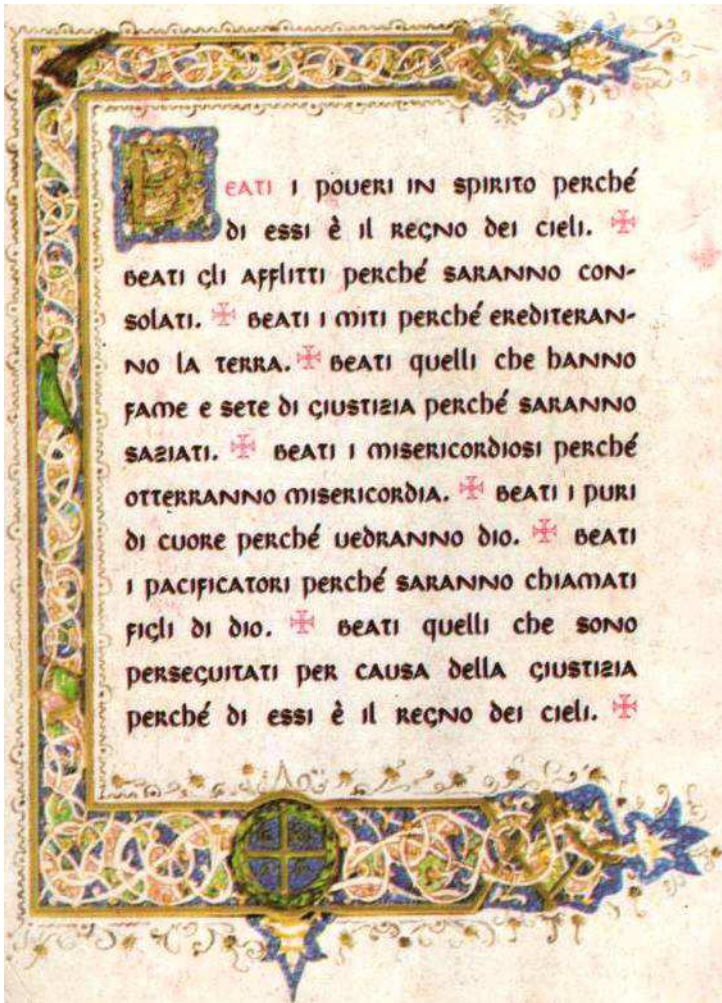 BEATI I POVERI IN SPIRITO perché
di essi è il REGNO dei cieli. ✠
BEATI gli AFFLITTI perché SARANNO CON-
solATI. ✠ BEATI I MITI perché EREDITERAN-
NO lA TERRA. ✠ BEATI quelli che hANNO
FAME e sete di GIUSTIZIA perché SARANNO
SAZIATI. ✠ BEATI I MISERICORDIOSI perché
OTTERRANNO MISERICORDIA. ✠ BEATI I PURI
di CUORE perché VEDRANNO DIO. ✠ BEATI
I PACIFICATORI perché SARANNO chIAMATI
FIGLI di DIO. ✠ BEATI quelli che SONO
PERSEGUITATI PER CAUSA dellA GIUSTIZIA
perché di essi è il REGNO dei cieli. ✠